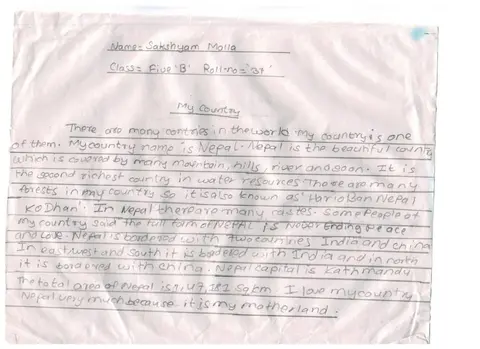 Name= Sakshyam Malla
Class= Five 'B' Roll.no= '37'
My Country
There are many contries in the world. My country is one
of them. My country name is Nepal. Nepal is the beautiful country
which is covered by many mountain, hills, river and soon. It is
the second richest country in water resources There are many
forests in my country so it is also known as 'Hario Ban Nepal
Ko Dhan'. In Nepal there are many castes. Some People of
my country said the full form of NEPAL is Never Ending Peace
and Love. Nepal is bordered with two countries India and china
In east west and south it is bordered with India and in north
it is bordered with china. Nepal capital is Kathmandu
The total area of Nepal is 1,47,181 sqkm. I love my country
Nepal very much because it is my motherland.